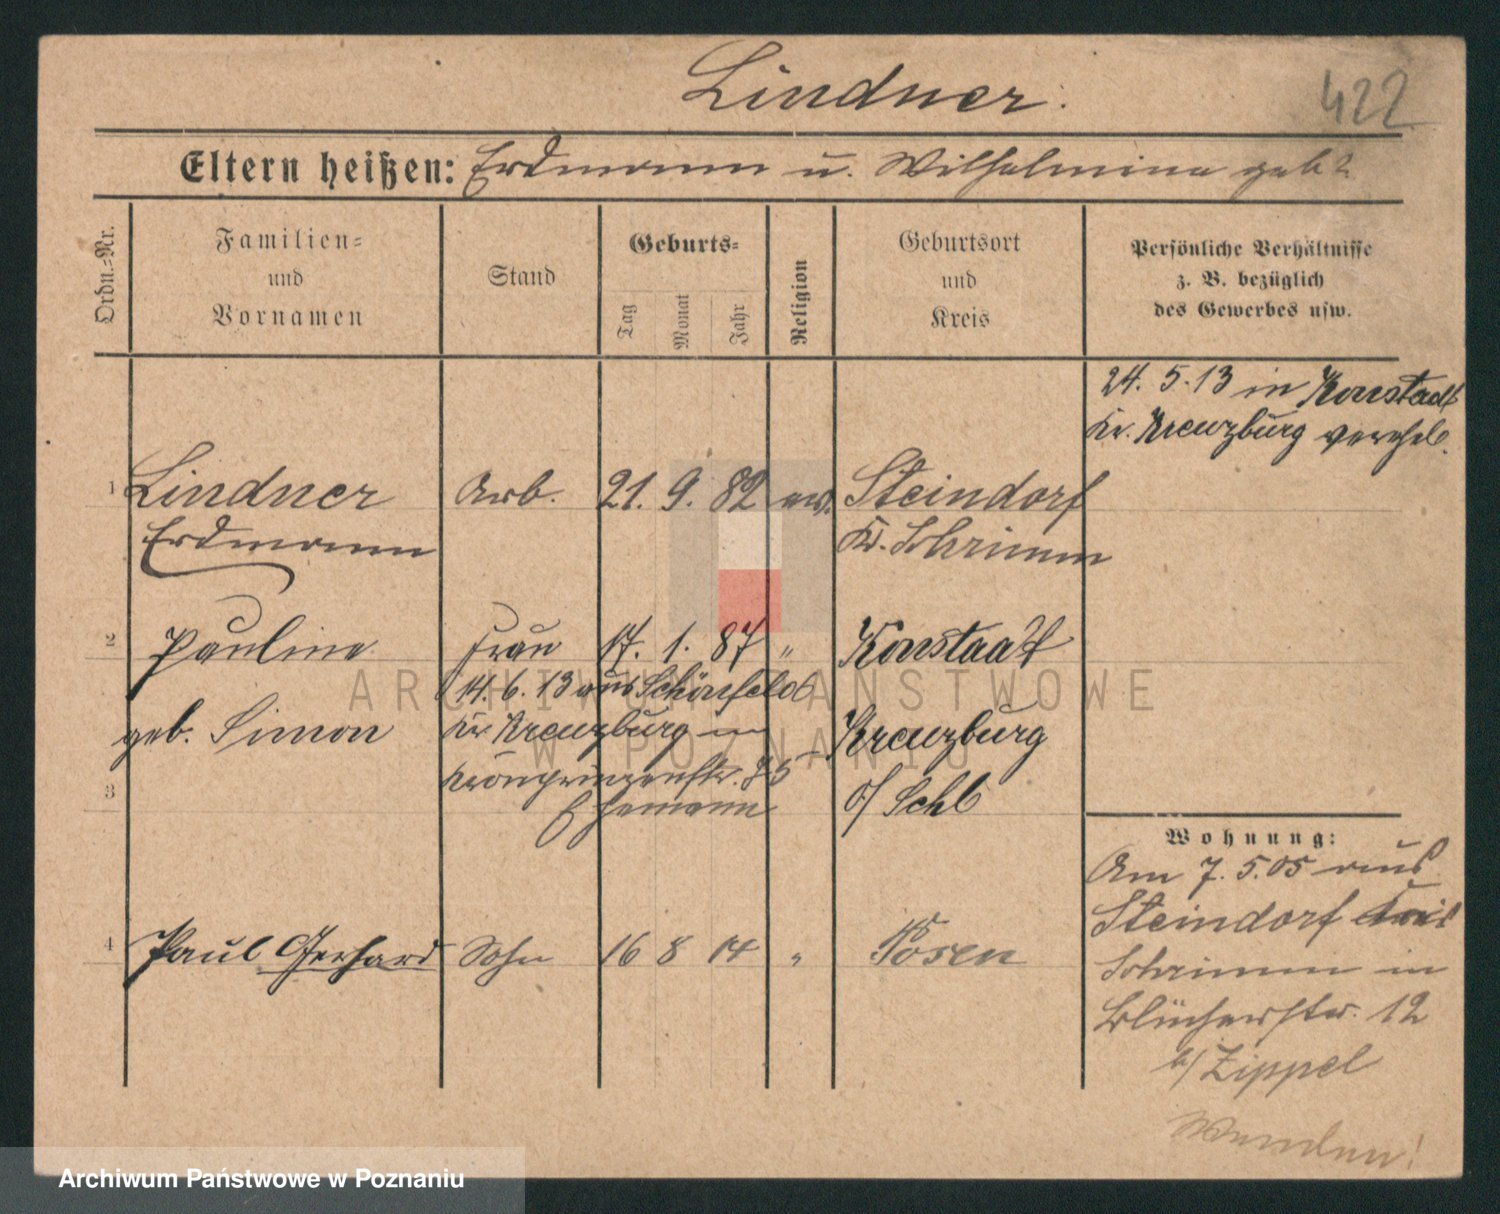 Lindner.
422
Eltern heißen: Erdmann u. Wilhelmina geb ?
Ordn.-Nr.
Familien-
und
Vornamen
Stand
Geburts-
Tag
Monat
Jahr
Religion
Geburtsort
und
Kreis
Persönliche Verhältnisse
z. B. bezüglich
des Gewerbes usw.
24. 5. 13 in Konstadt
Kr. Kreuzburg verehel.
1 Lindner Arb. 21. 9. 82 ev. Steindorf
Erdmann Kr. Schrimm
2 Pauline Frau 17. 1. 87 " Konstadt
14. 6. 13 aus Schönfeld
geb. Simon Kr. Kreuzburg in Kreuzburg
Kronprinzenstr.
3 Ehemann o/ Schl
Wohnung:
Am 7. 5. 05 aus
Steindorf Kreis
Schrimm in
Blücherstr. 12
b/ Zippel
Wenden!
4 Paul Gerhard Sohn 16 8 14 " Posen
ARCHIWUM PAŃSTWOWE
W POZNANIU
Archiwum Państwowe w Poznaniu